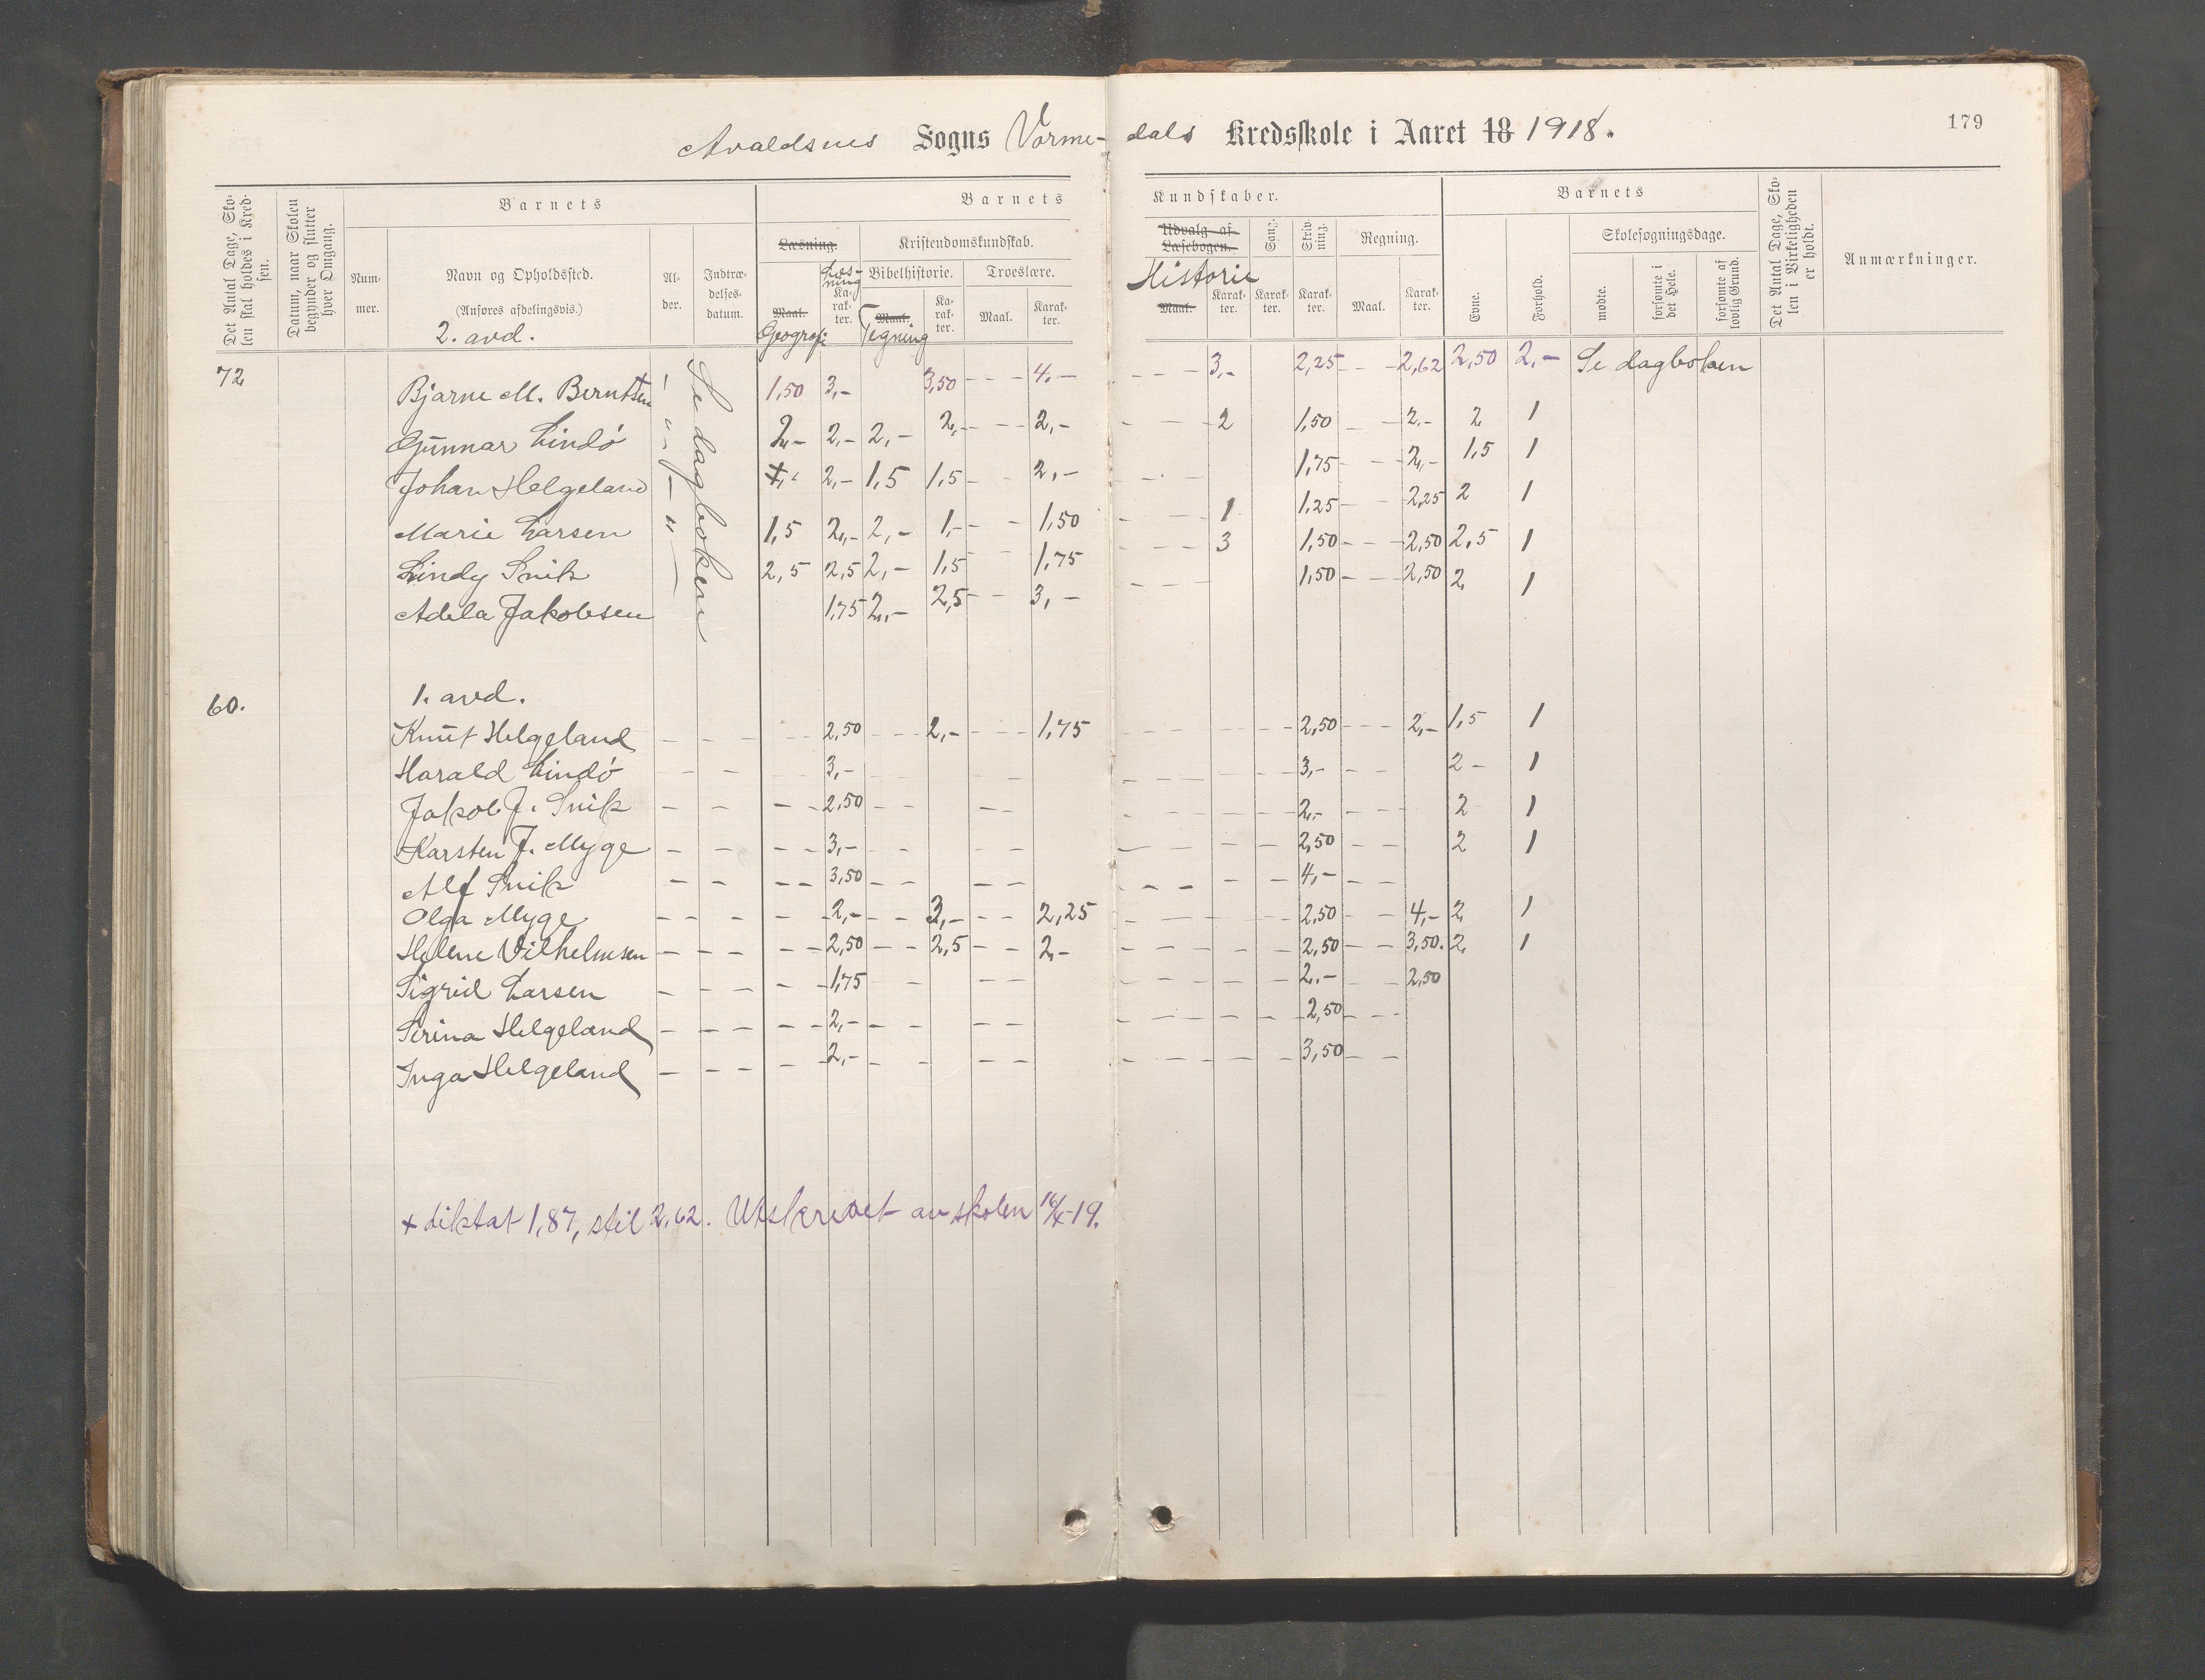 Avaldsnes Sogns Vorme-dals Kredsskole i Aaret 18 1918.
179
Det Antal Dage, Skolen skal holdes i Kredsen.
Datum, naar Skolen begynder og slutter hver Omgang.
Barnets
Nummer.
Navn og Opholdssted.
(Anføres afdelingsvis.)
2. avd.
Alder.
Indtrædelsesdatum.
Barnets Kundskaber.
Læsning.
Maal.
Geografi
Læsning
Karakter.
Kristendomskundskab.
Bibelhistorie.
Maal.
Tegning
Karakter.
Troeslære.
Maal.
Karakter.
Udvalg af Læsebogen.
Historie
Maal.
Karakter.
Sang.
Karakter.
Skrivning.
Karakter.
Regning.
Maal.
Karakter.
Barnets
Evne.
Forhold.
Skolesøgningsdage.
mødte.
forsømte i det Hele.
forsømte af lovlig Grund.
Det Antal Dage, Skolen i Virkeligheden er holdt.
Anmærkninger.
Se dagboken
72 Bjarne M. Berntsen + 1,50 3,- 3,50 - - - 4,- - - - 3,- 2,25 - - - 2,62 2,50 2,- Se dagboken
Gunnar Lindø 2,- 2,- 2,- 2,- - - - 2,- - - - 2 1,50 - - 2,- 2 1
Johan Helgeland 2,- 1,5 1,5 - - 2,- - - 1,75 - - - 2,- 1,5 1
Marie Larsen 1,5 2,- 2,- 1,- - - 1,50 - - - 1 1,25 - - - 2,25 2 1
Lindy Snik 2,5 2,5 2,- 1,5 - - 1,75 - - - 3 1,50 - - - 2,50 2,5 1
Adela Jakobsen 1,75 2,- 2,5 - - 3,- - - - 1,50 - - - 2,50 2 1
60. 1. avd.
Knut Helgeland - - - - - 2,50 - - - 2,- - - - 1,75 - - - - - - 2,50 - - - 2,- 1,5 1
Harald Lindø - - - - - 3,- - - - - - - - - - 3,- - - 2 - 1
Jakob J. Snik - - - - 2,50 - - - - - - - - - 2,- - - - 2 1
Karsten J. Myge - - - - 3,- - - - - - - - - 2,50 - - 2 1
Alf Snik - - - - 3,50 - - - - - - - - - 4,- - -
Olga Myge - - - - - 2,- - - 3,- - - 2,25 - - - - - 2,50 - - 4,- 2 1
Helene Vilhelmsen - - - - - 2,50 - - 2,5 - - 2,- - - - - - 2,50 - - 3,50. 2 1
Sigrid Larsen - - - - - 1,75 - - - - - - - - - 2,- - - 2,50
Serina Helgeland - - - - - 2,- - - - - - - - - - 2,50 - - -
Inga Helgeland - - - - - 2,- - - - - - - - - - 3,50 - -
+ diktat 1,87, stil 2,62. Utskrevet av skolen 16/4-19.